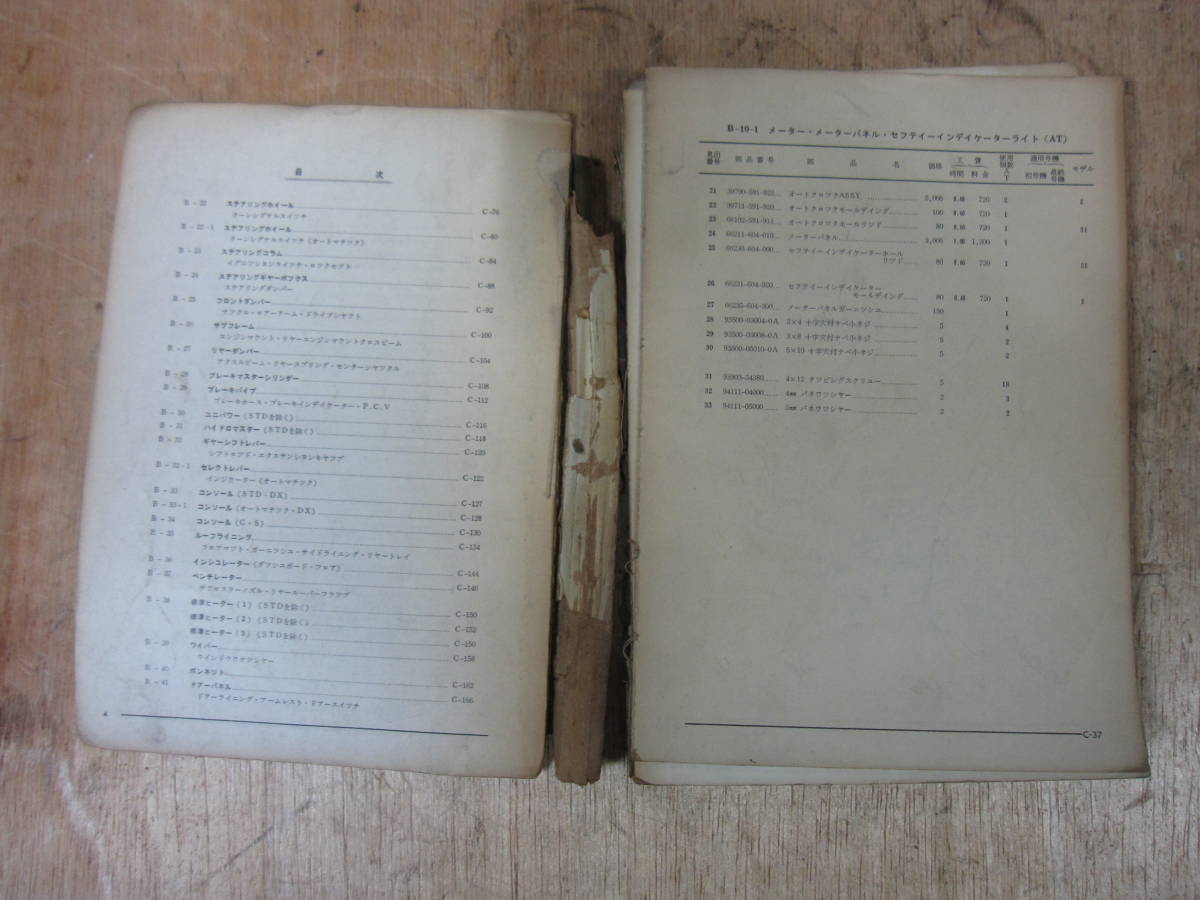 目 次
B-22 ステアリングホイール C-76
ターンシグナルスイツチ
B-22-1 ステアリングホイール C-80
ターンシグナルスイツチ(オートマチツク)
B-23 ステアリングコラム C-84
イグニツシヨンスイツチ・ロツクセツト
B-24 ステアリングギヤーボツクス C-88
ステアリングダンパー
B-25 フロントダンパー C-92
ナツクル・ロアーアーム・ドライブシヤフト
B-26 サブフレーム C-100
エンジンマウント・リヤーエンジンマウントクロスビーム
B-27 リヤーダンパー C-104
アクスルビーム・リヤースプリング・センターシヤツクル
B-28 ブレーキマスターシリンダー C-108
B-29 ブレーキパイプ C-112
ブレーキホース・ブレーキインデイケーター・P.C.V
B-30 ユニパワー(STDを除く) C-116
B-31 ハイドロマスター(STDを除く) C-118
B-32 ギヤーシフトレバー C-120
シフトロツド・エクステンシヨンキヤツプ
B-32-1 セレクトレバー C-122
インジケーター(オートマチツク)
B-33 コンソール(STD・DX) C-127
B-33-1 コンソール(オートマチツク・DX) C-128
B-34 コンソール(C・S) C-130
B-35 ルーフライニング C-134
フロアマツト・ガーニツシユ・サイドライニング・リヤートレイ
B-36 インシユレーター(ダツシユボード・フロア) C-144
B-37 ベンチレーター C-146
デフロスターノズル・リヤールーバーフラツプ
B-38 標準ヒーター(1)(STDを除く) C-150
標準ヒーター(2)(STDを除く) C-152
標準ヒーター(3)(STDを除く) C-150
B-39 ワイパー C-158
ウインドウウオツシヤー
B-40 ボンネツト C-162
B-41 ドアーパネル C-166
ドアーライニング・アームレスト・ドアースイツチ
4
B-10-1 メーター・メーターパネル・セフテイーインデイケーターライト(AT)
見出番号 部品番号 部品名 価格 工賃 時間 料金 使用個数 AT 適用号機 初号機 最終号機 モデル
21 39790-591-920 オートクロツクASSY. 5,000 0.6 720 2
22 39711-591-920 オートクロツクモールデイング 100 0.6 720 1
23 66102-591-911 オートクロツクホールリツド 80 0.6 720 1
24 66211-604-010 メーターパネル 3,000 1.0 1,200 1
25 66230-604-000 セフテイーインデイケーターホール
リツド 80 0.6 720 1
26 66231-604-920 セフテイーインデイケーター
モールデイング 80 0.6 720 1
27 66235-604-300 メーターパネルガーニツシユ 130 1
28 93500-03004-0A 3×4 十字穴付ナベ小ネジ 5 4
29 93500-03008-0A 3×8 十字穴付ナベ小ネジ 5 2
30 93500-05010-0A 5×10 十字穴付ナベ小ネジ 5 2
31 93903-34380 4×12 タツピングスクリユー 5 18
32 94111-04000 4㎜ バネワツシヤー 2 3
33 94111-05000 5㎜ バネワツシヤー 2 2
C-37